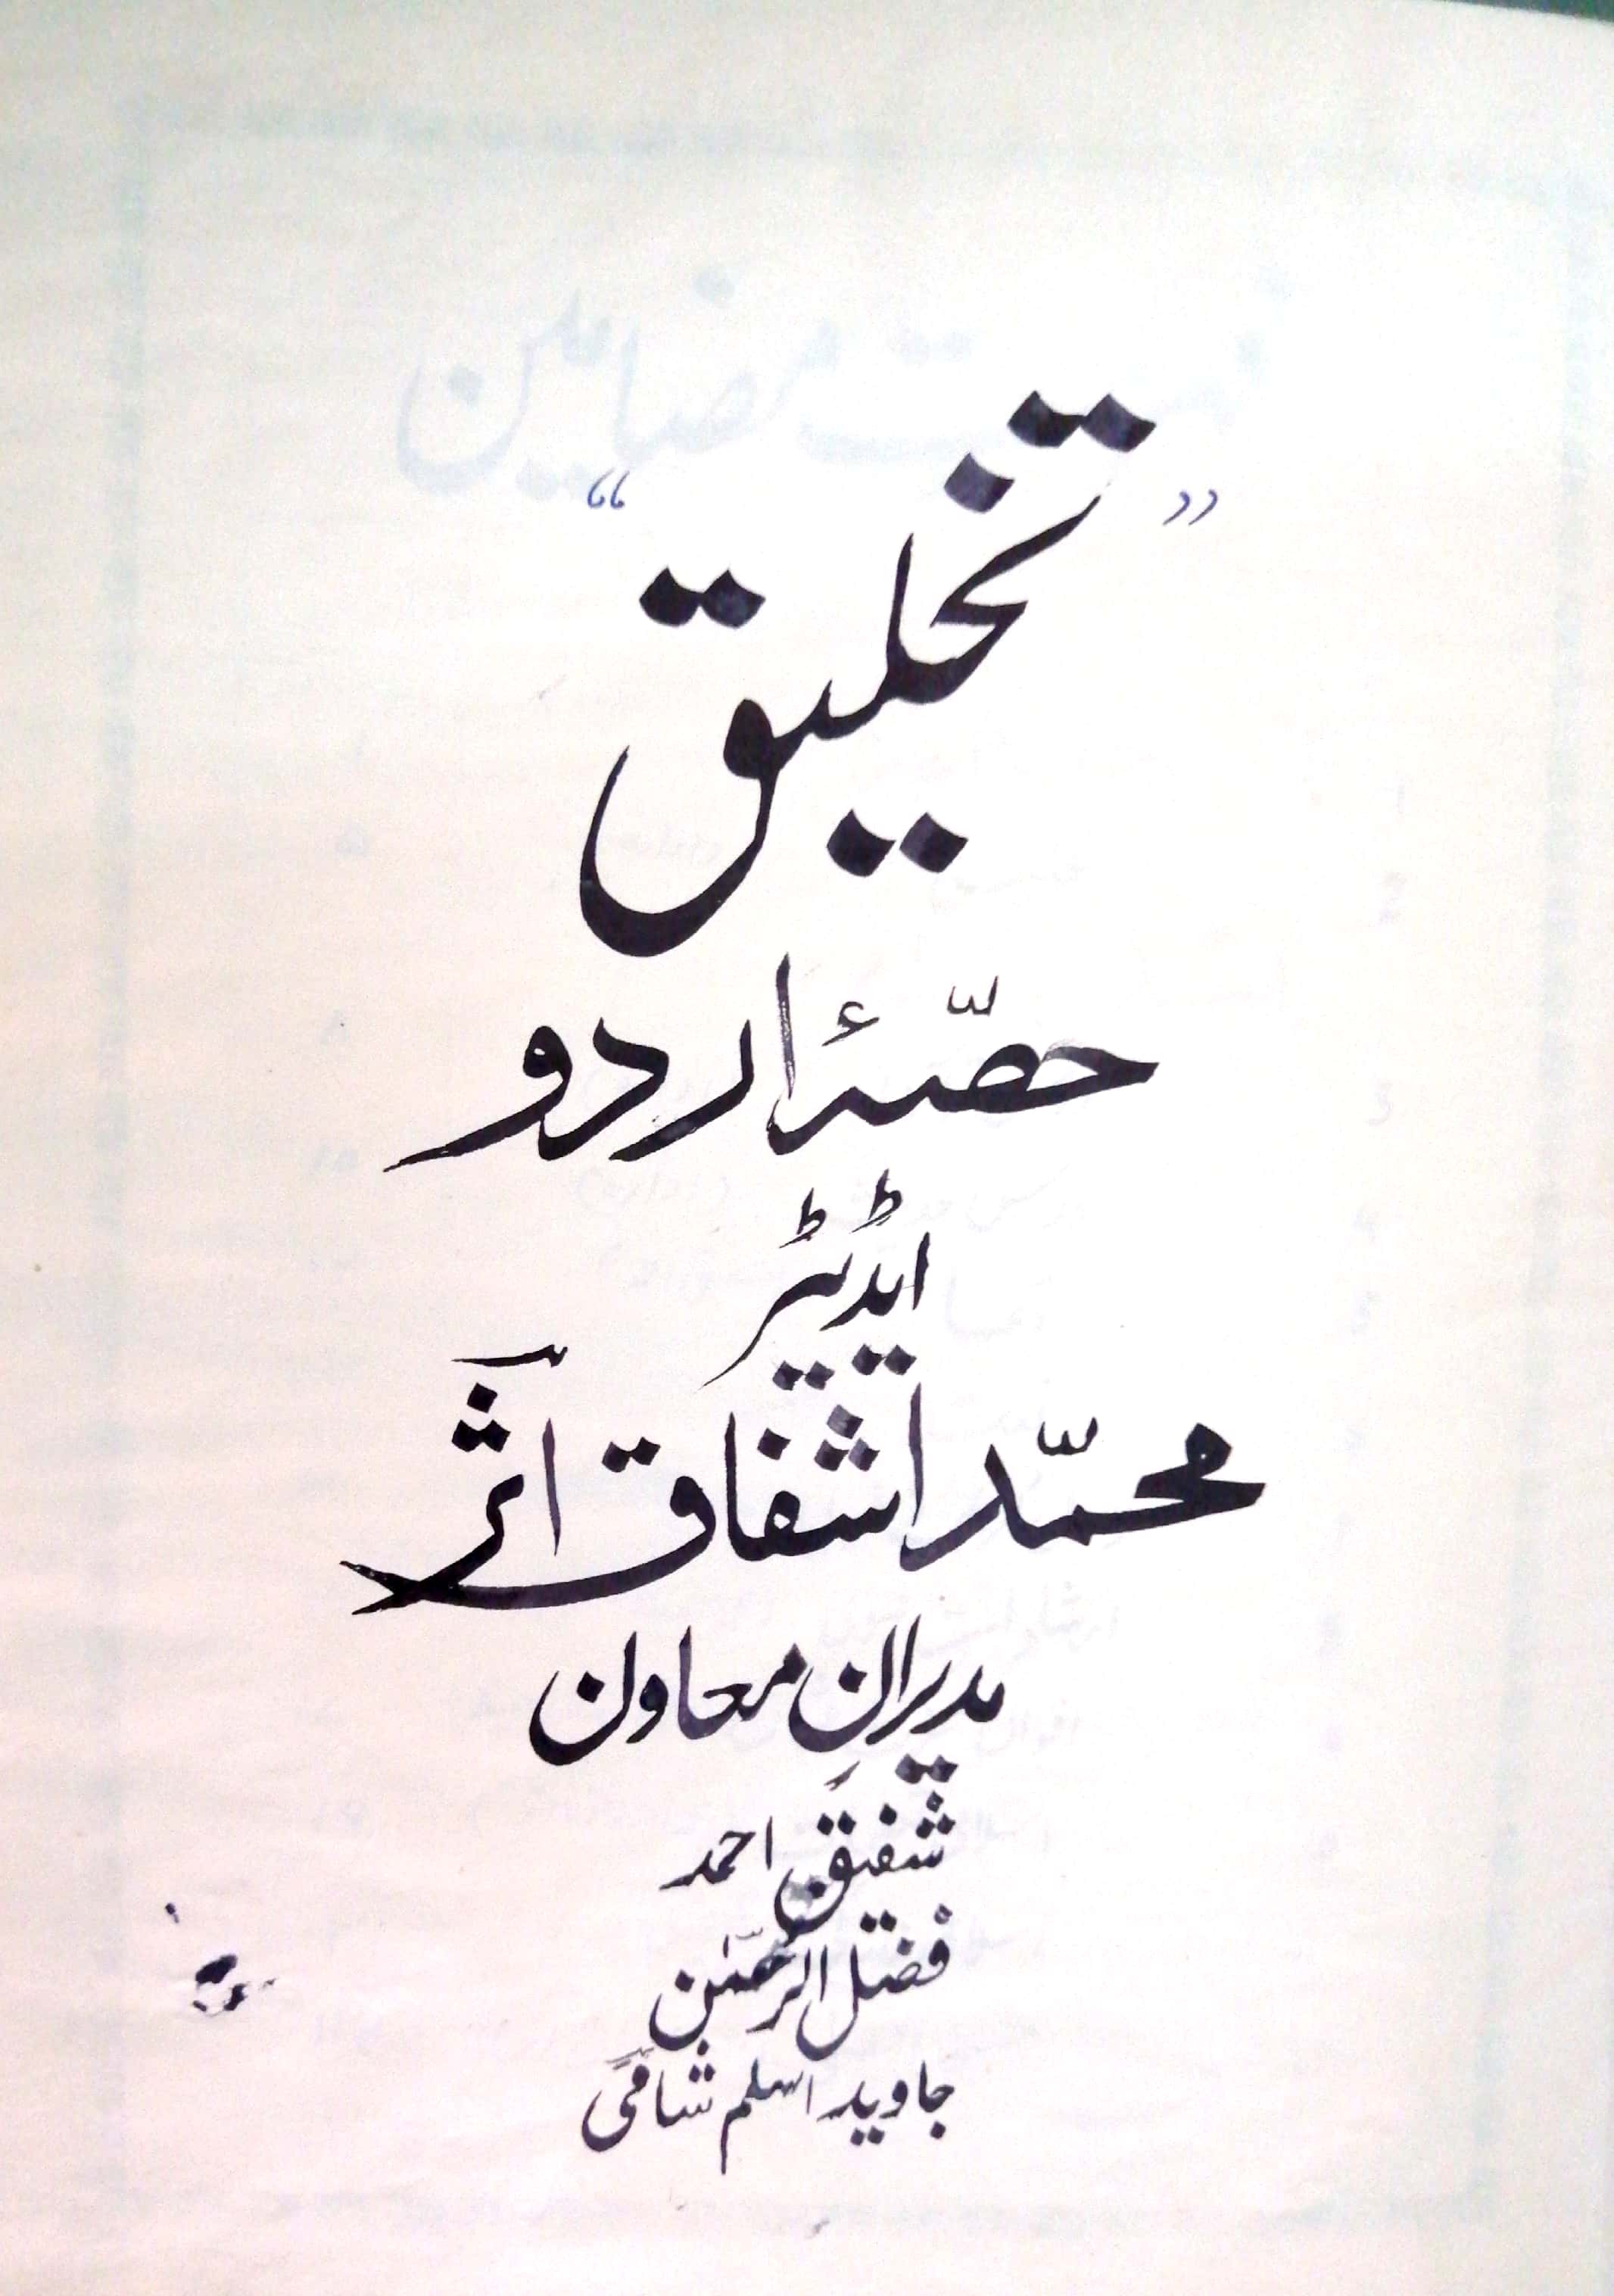 ”تخلیق“
حصّۂ اردو
ایڈیٹر
محمّد اشفاق اثؔر
مدیرانِ معاون
شفیق احمد
فضل الرحمٰن
جاوید اسلم شامی
فہرست مضامین